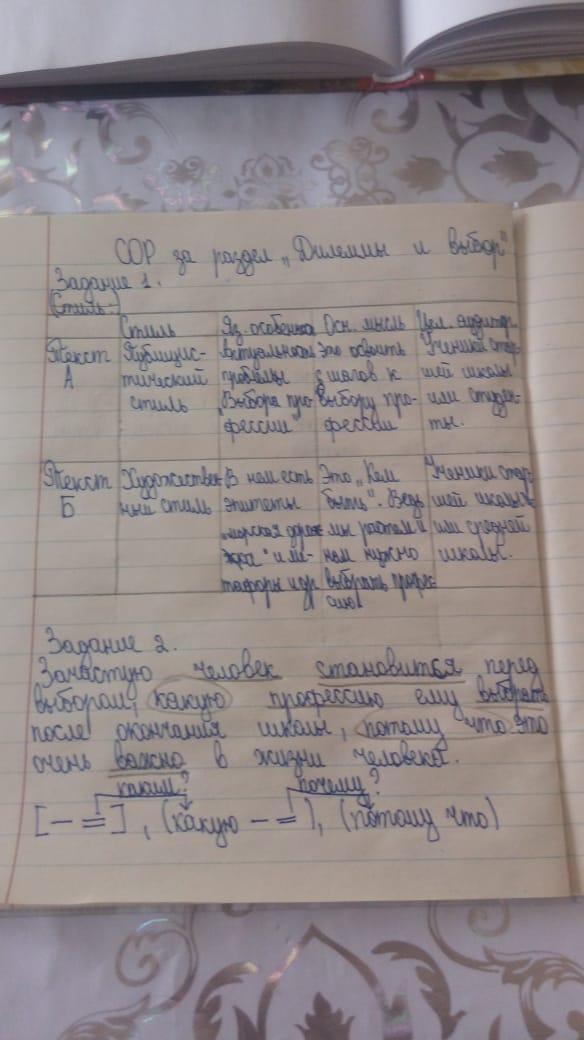 СОР за раздел „Дилеммы и выбор"
Задание 1.
(Стиль:)
Стиль Яз. особенно Осн. мысль Цел. аудитор
Текст А
Публицис-
тический
стиль
Актуальность
проблемы
„Выбора про-
фессии"
Это освоить
5 шагов к
выбору про-
фессии
Ученики стар
шей школы
или студен-
ты.
Текст Б
Художествен
ный стиль
В нем есть
эпитеты
„морская
и ме-
тафоры и др
Это „Кем
быть". Ведь
мы растем и
нам нужно
выбрать профес
сию
Ученики стар
шей школы
или средней
школы.
Задание 2.
Зачастую человек становится перед
выбором, какую профессию ему выбрать
после окончания школы, потому что это
очень важно в жизни человека.
каким? почему?
[– =], (какую – =), (потому что)